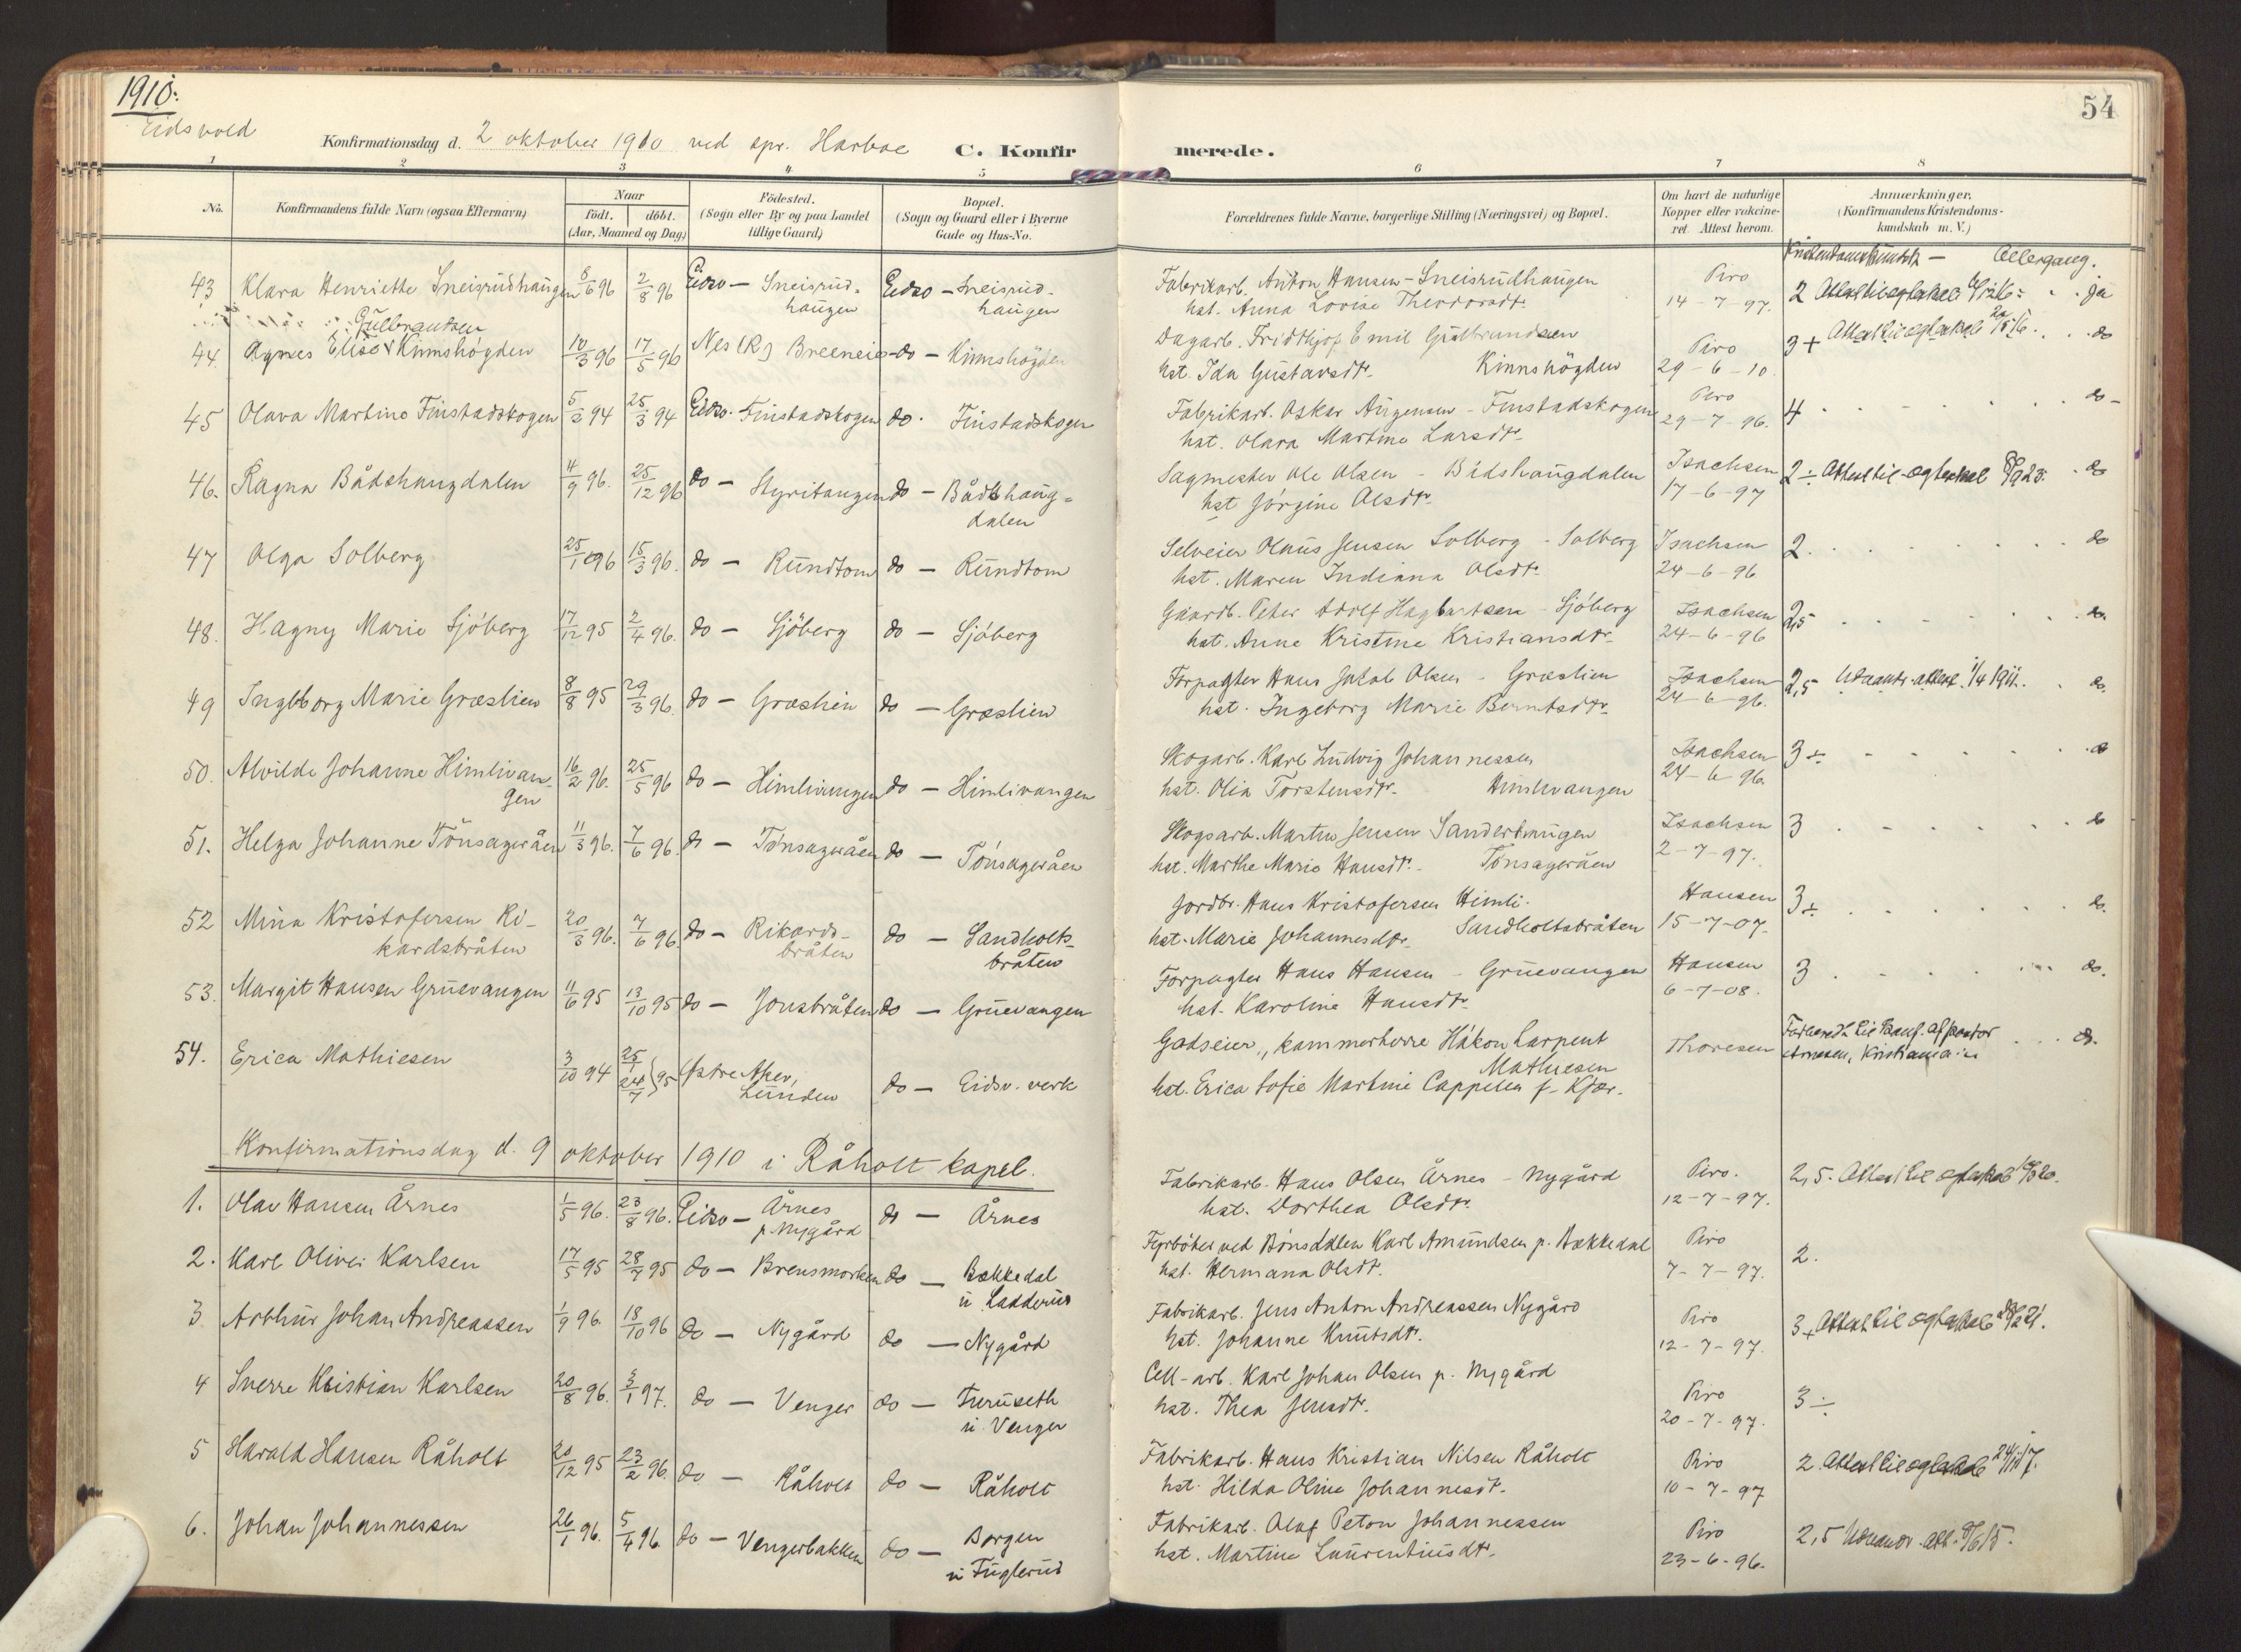 1910:
Eidsvold
54
Konfirmationsdag d. 2 oktober 1910 ved spr. Harboe
C. Konfirmerede.
1 2 3 4 5 6 7 8
No.
Konfirmandens fulde Navn (ogsaa Efternavn)
Naar
födt. döbt.
(Aar, Maaned og Dag)
Födested.
(Sogn eller By og paa Landet
tillige Gaard)
Bopæl.
(Sogn og Gaard eller i Byerne
Gade og Hus-No.
Forældrenes fulde Navne, borgerlige Stilling (Næringsvei) og Bopæl.
Om havt de naturlige
Kopper eller vakcine-
ret. Attest herom.
Anmærkninger,
(Konfirmandens Kristendoms-
kundskab m. V.)
Kristendomskundsk — Altergang.
43 Klara Henriette Sneisrudhaugen 8/6 96 2/8 96 Eidsv — Sneisrud-haugen Eidsv — Sneisrud-haugen
Fabrikarb. Anton Hansen - Sneisrudhaugen
hst. Anna Lovise Theodorsdtr. Piro 14-7-97. 2 Attest til egteskab ja
Gulbrandsen
44. Agnes Elise Kinnshögden 10/3 96 17/5 96 Nes (R.) Breeneie do — Kinnshögden
Dagarb. Fridthjof Emil Gulbrandsen
hst. Ida Gustavsdtr. Kinnshögden Piro 29-6-10. 3+ Attest til egteskab do
45 Olava Martine Finstadskogen 5/2 94 25/3 94 Eidsv. Finstadskogen do. Finstadskogen
Fabrikarb. Oskar Jörgensen - Finstadskogen
hst. Olava Martine Larsdtr. Piro 29-7-96. 4 do
46. Ragna Bådshaugdalen 4/9 96. 25/12 96 do — Styritangen do — Bådshaug-dalen
Sagmester Ole Olsen - Bådshaugdalen
hst Jörgine Olsdtr. Isachsen 17-6-97 2÷ Attest til egteskab do
47 Olga Solberg 25/1 96 15/3 96. do — Rundtom do — Rundtom
Selveier Olaus Jensen Solberg - Solberg
hst. Maren Indiana Olsdtr. Isachsen 24-6-96 2. do
48. Hagny Marie Sjöberg 17/12 95 2/4 96. do — Sjöberg do — Sjöberg
Gaardb. Peter Adolf Hagbartsen - Sjöberg
hst. Anne Kristine Kristiansdtr. Isachsen 24-6-96 2,5 do.
49 Ingeborg Marie Græslien 8/8 95 29/3 96. do — Græslien do — Græslien
Forpagter Hans Jakob Olsen - Græslien
hst. Ingeborg Marie Berntsdtr. Isachsen 24-6-96. 2,5 Udvandr. attest. 1/4 1911. do.
50. Alvilde Johanne Himlivan-gen 16/2 96. 25/5 96 do — Himlivangen do — Himlivangen
Skogarb. Karl Ludvig Johannessen
hst. Olia Torstensdtr. Himlivangen Isachsen 24-6-96. 3÷ do
51. Helga Johanne Tönsageråen 11/3 96. 7/6 96. do — Tönsageråen do — Tönsageråen
Skogsarb. Martin Jensen Sanderhaugen
hst. Marthe Marie Hansdtr. Tönsageråen Isachsen 2-7-97. 3 do
52 Mina Kristofersen Ri-kardsbråten 20/3 96. 7/6 96. do — Rikards-bråten do — Sandholts-bråten
Jordbr. Hans Kristofersen Himli.
hst. Marie Johannesdtr. Sandholtsbråten Hansen 15-7-07. 3÷ do.
53. Margit Hansen Gruevangen 11/6 95 13/10 95 do — Jonsbråten do — Gruevangen
Forpagter Hans Hansen - Gruevangen
hst. Karoline Hansdtr. Hansen 6-7-08. 3 do.
54. Erica Mathiesen 3/10 94 25/1 24/7 } 95 Østre Aker, Lunden do — Eidsv. verk
Godseier, kammerherre Håkon Larpent
Mathiesen
hst. Erica Sofie Martine Cappelen f. Kjær. Thoresen Forberedt til konf. af pastor
Arnesen, Kristiania do.
Konfirmationsdag d. 9 oktober 1910 i Råholt kapel.
1. Olav Hansen Årnes 1/5 96. 23/8 96. Eidsv — Årnes p. Nygård do — Årnes
Fabrikarb. Hans Olsen Årnes - Nygård
hst. Dorthea Olsdtr. Piro. 12-7-97. 2,5. Attest til egteskab
2. Karl Oliver Karlsen 17/5 95 28/7 95 do — Brensmorken do — Bækkedal u. Ladderud
Fyrböter ved Bönsdalen Karl Amundsen p. Bækkedal
hst. Hermana Olsdt. Piro 7-7-97. 2.
3 Arthur Johan Andreassen 1/9 96. 18/10 96 do — Nygård do — Nygård
Fabrikarb. Jens Anton Andreassen Nygård
hst. Johanne Knutsdt. Piro 12-7-97. 3+ Attest til egteskab
4 Sverre Kristian Karlsen 20/8 96. 3/1 97. do — Venger do — Furuseth u. Venger
Cell-arb. Karl Johan Olsen p. Nygård
hst. Thea Jensdt. Piro 20-7-97. 3÷
5 Harald Hansen Råholt 20/12 95 23/2 96. do — Råholt do — Råholt
Fabrikarb. Hans Kristian Nilsen Råholt
hst. Hilda Oline Johannesdt. Piro 10-7-97 2. Attest til egteskab
6. Johan Johannessen 26/1 96. 5/4 96. do — Vengerbakken do — Borgen u. Fuglerud
Fabrikarb. Olaf Peton Johannessen
hst. Martine Laurentiusdt. Piro 23-6-96. 2,5 Udvandr. att.